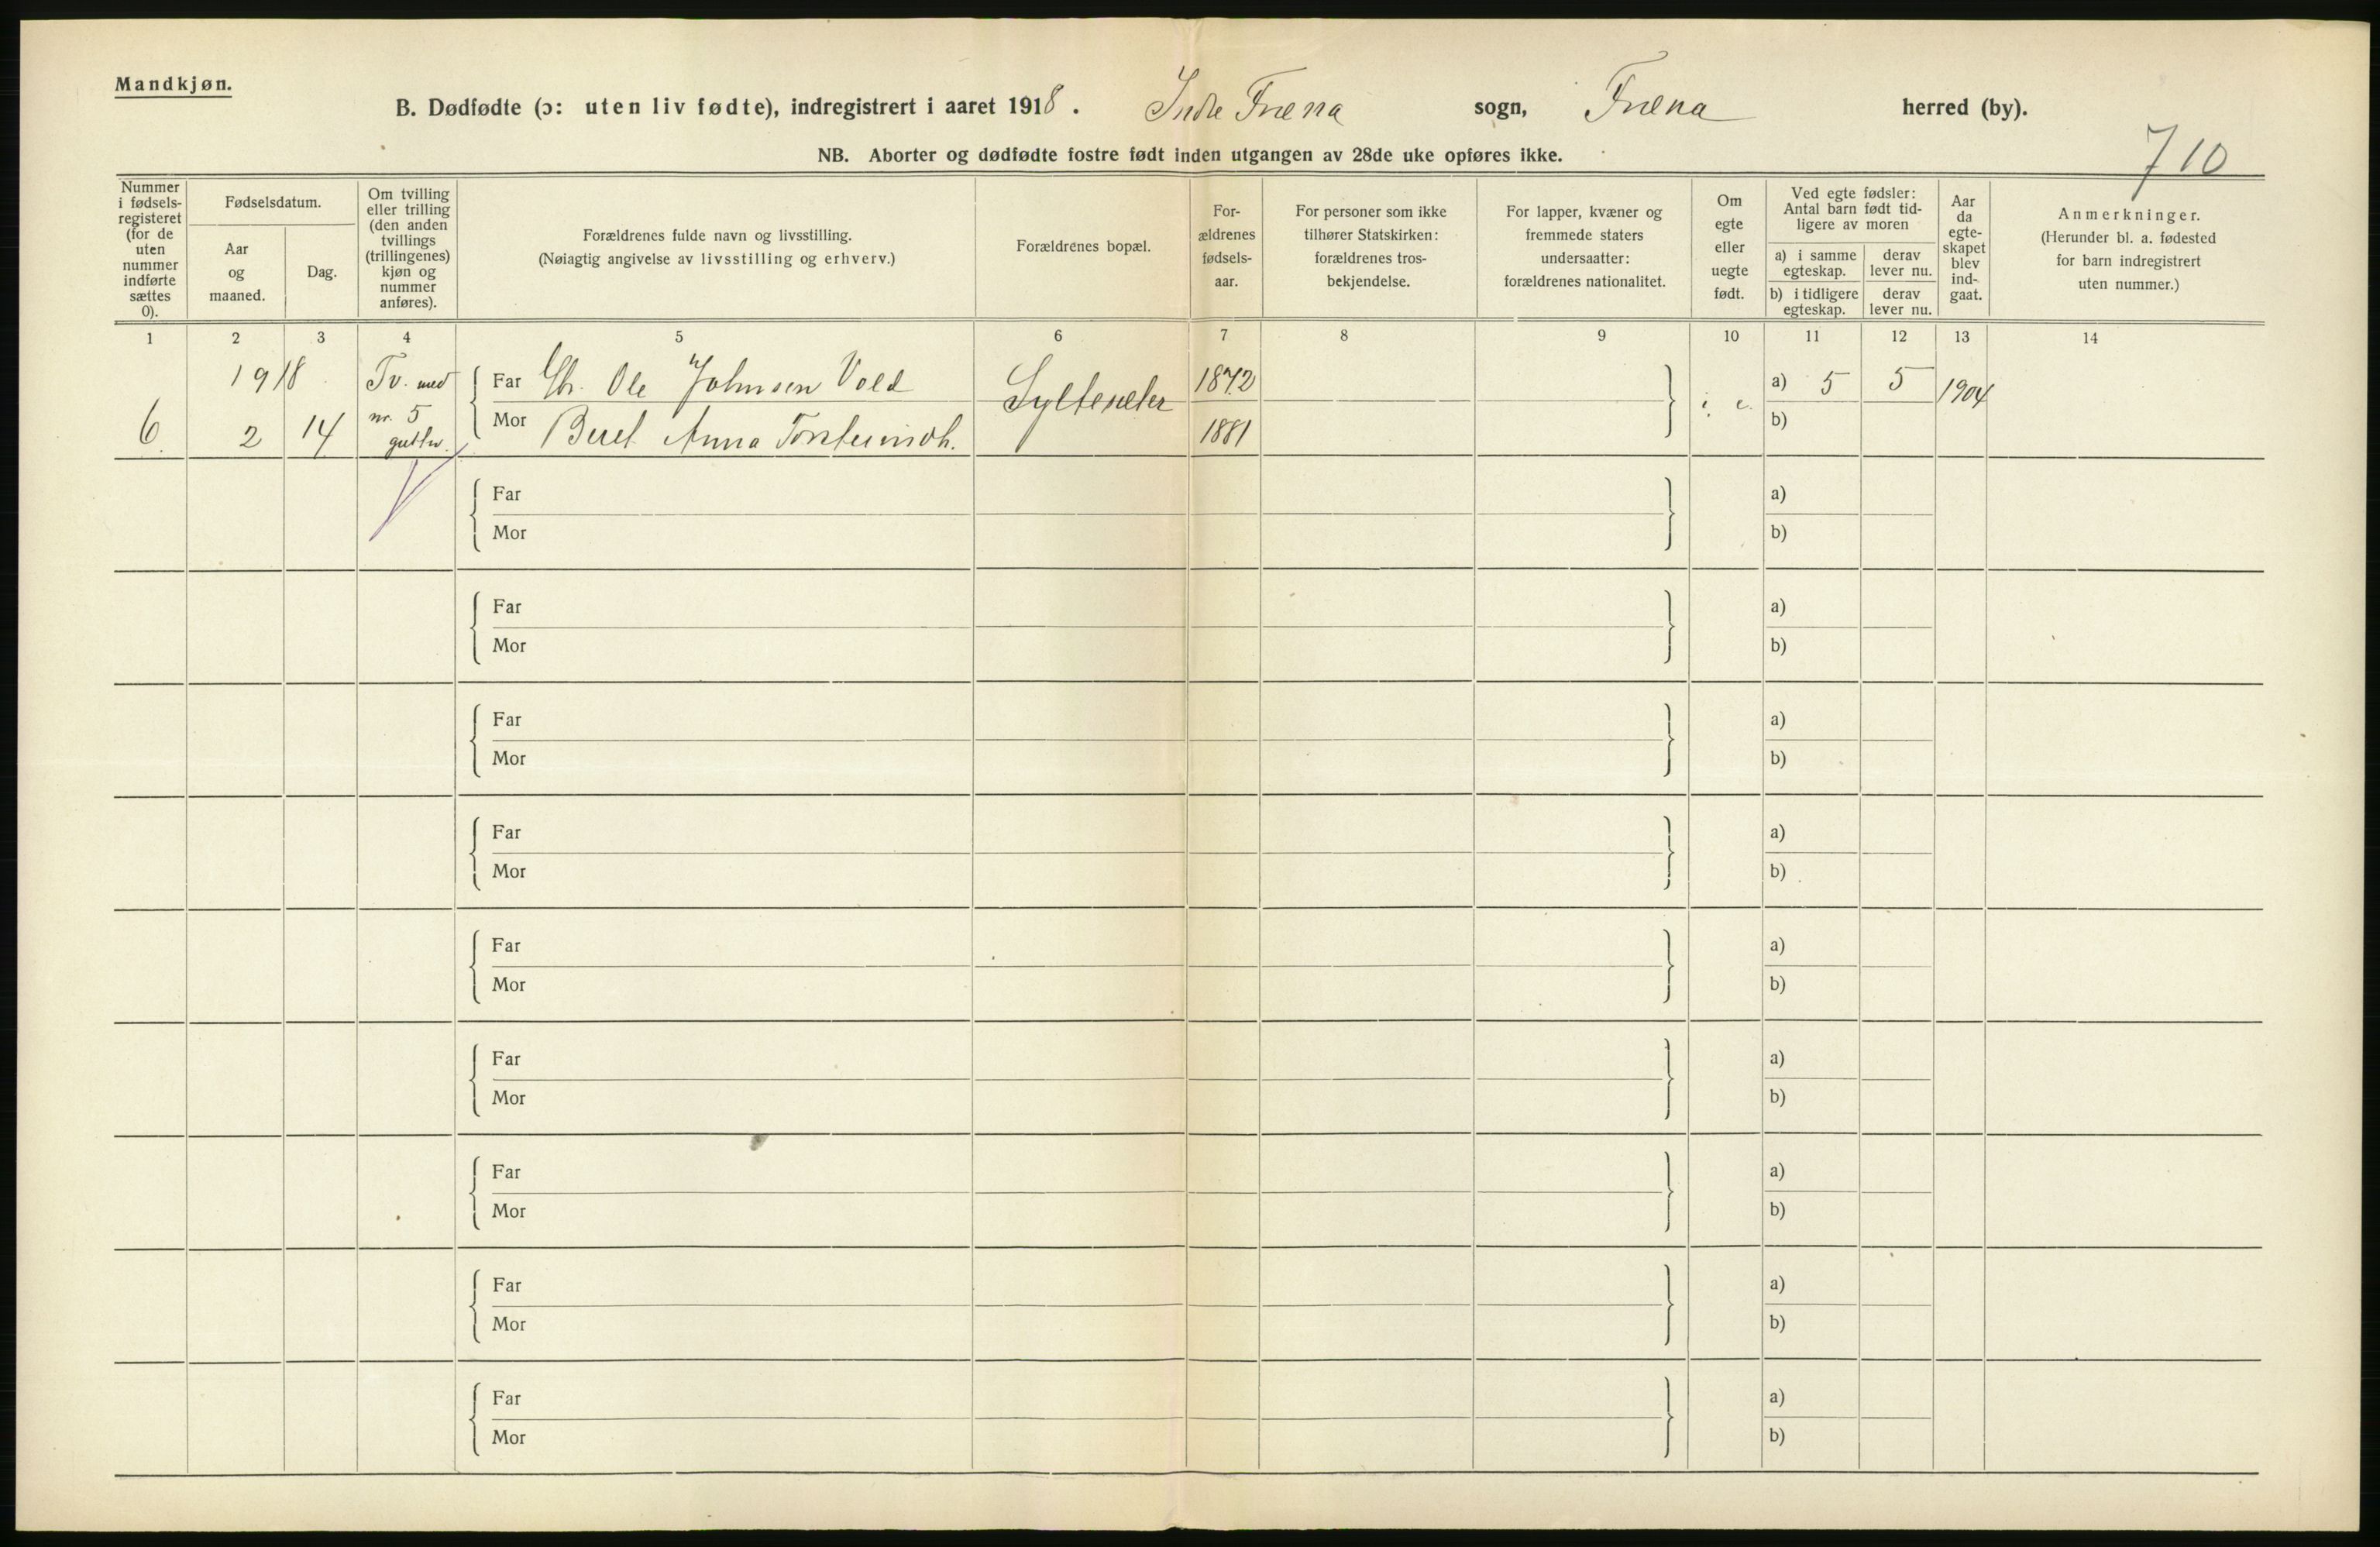 Mandkjøn.
B. Dødfødte (ɔ: uten liv fødte), indregistrert i aaret 1918. Indre Fræna sogn, Fræna herred (by).
NB. Aborter og dødfødte fostre født inden utgangen av 28de uke opføres ikke.
710
Nummer i fødsels-registeret (for de uten nummer indførte sættes 0).
Fødselsdatum.
Aar og maaned.
Dag.
Om tvilling eller trilling (den anden tvillings (trillingenes) kjøn og nummer anføres).
Forældrenes fulde navn og livsstilling.
(Nøiagtig angivelse av livsstilling og erhverv.)
Forældrenes bopæl.
For-ældrenes fødsels-aar.
For personer som ikke tilhører Statskirken: forældrenes tros-bekjendelse.
For lapper, kvæner og fremmede staters undersaatter: forældrenes nationalitet.
Om egte eller uegte født.
Ved egte fødsler: Antal barn født tid-ligere av moren
a) i samme egteskap.
derav lever nu.
b) i tidligere egteskap.
derav lever nu.
Aar da egte-skapet blev ind-gaat.
Anmerkninger.
(Herunder bl. a. fødested for barn indregistrert uten nummer.)
1 2 3 4 5 6 7 8 9 10 11 12 13 14
1918 Tv. med Far Gbr. Ole Johnsen Vold 1872 a) 5 5 1904
nr. 5
6. 2 14 gutter. Mor Beret Anna Torsteinsdh. 1881 b)
Far a)
Mor b)
Far a)
Mor b)
Far a)
Mor b)
Far a)
Mor b)
Far a)
Mor b)
Far a)
Mor b)
Far a)
Mor b)
Far a)
Mor b)
Far a)
Mor b)